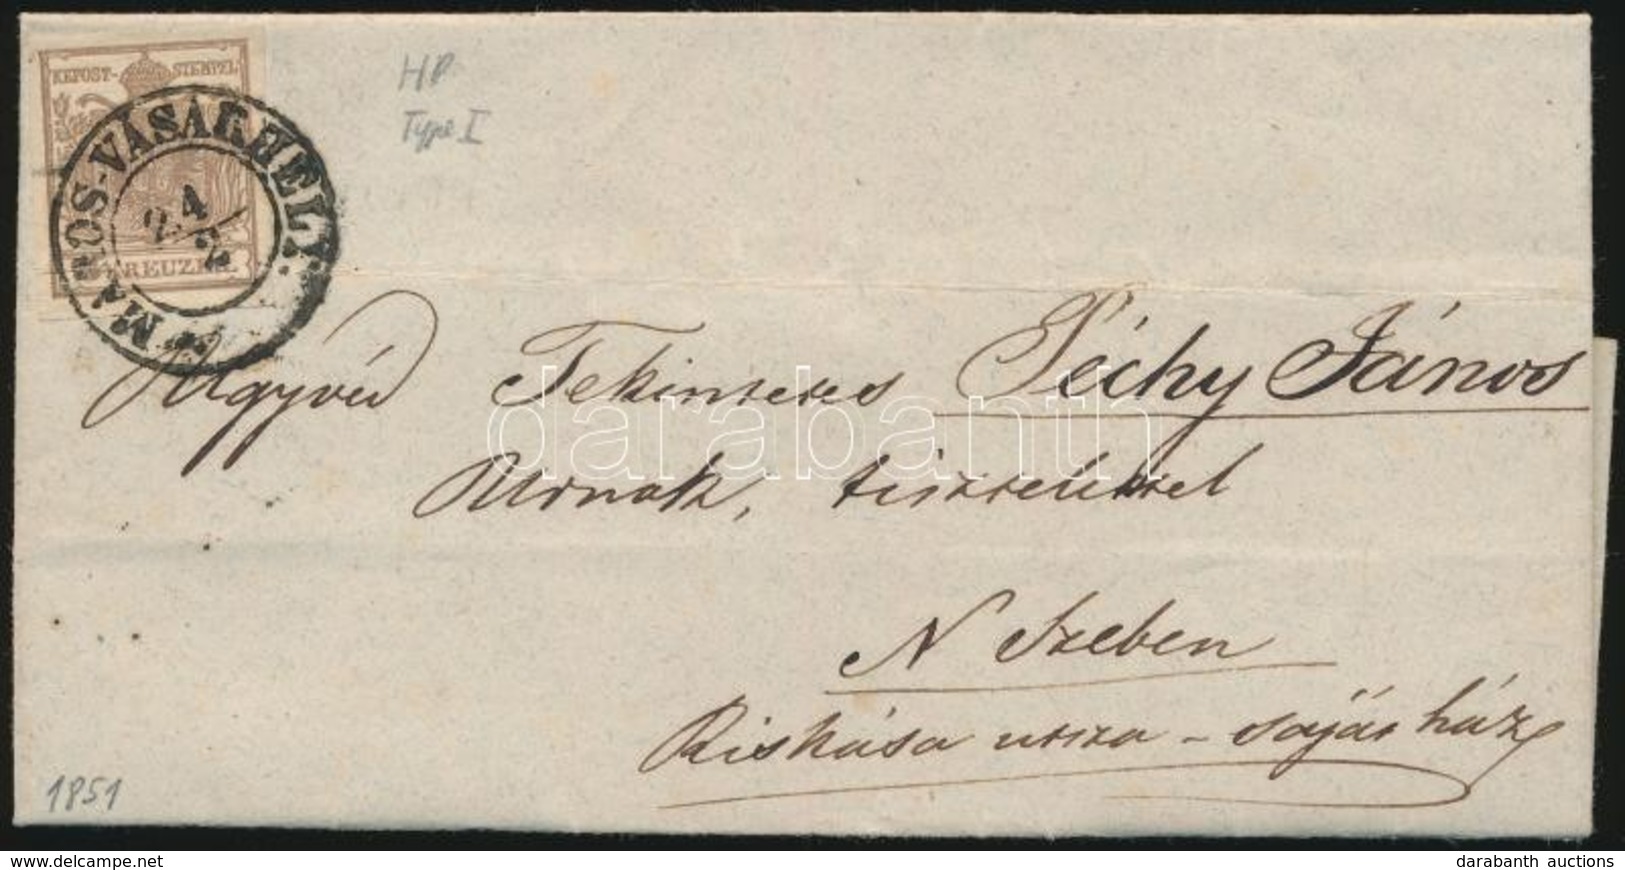 KKPOST-STEMPEL
MAROS-VÁSÁRHELY.
24/2
KREUZER
HP
Type I
Ügyvéd Tekintetes Péchy János
Urnak, tisztelettel
N Szeben
Kiskása utza - saját ház
1851
darabanth
www.delcampe.net
darabanth auctions